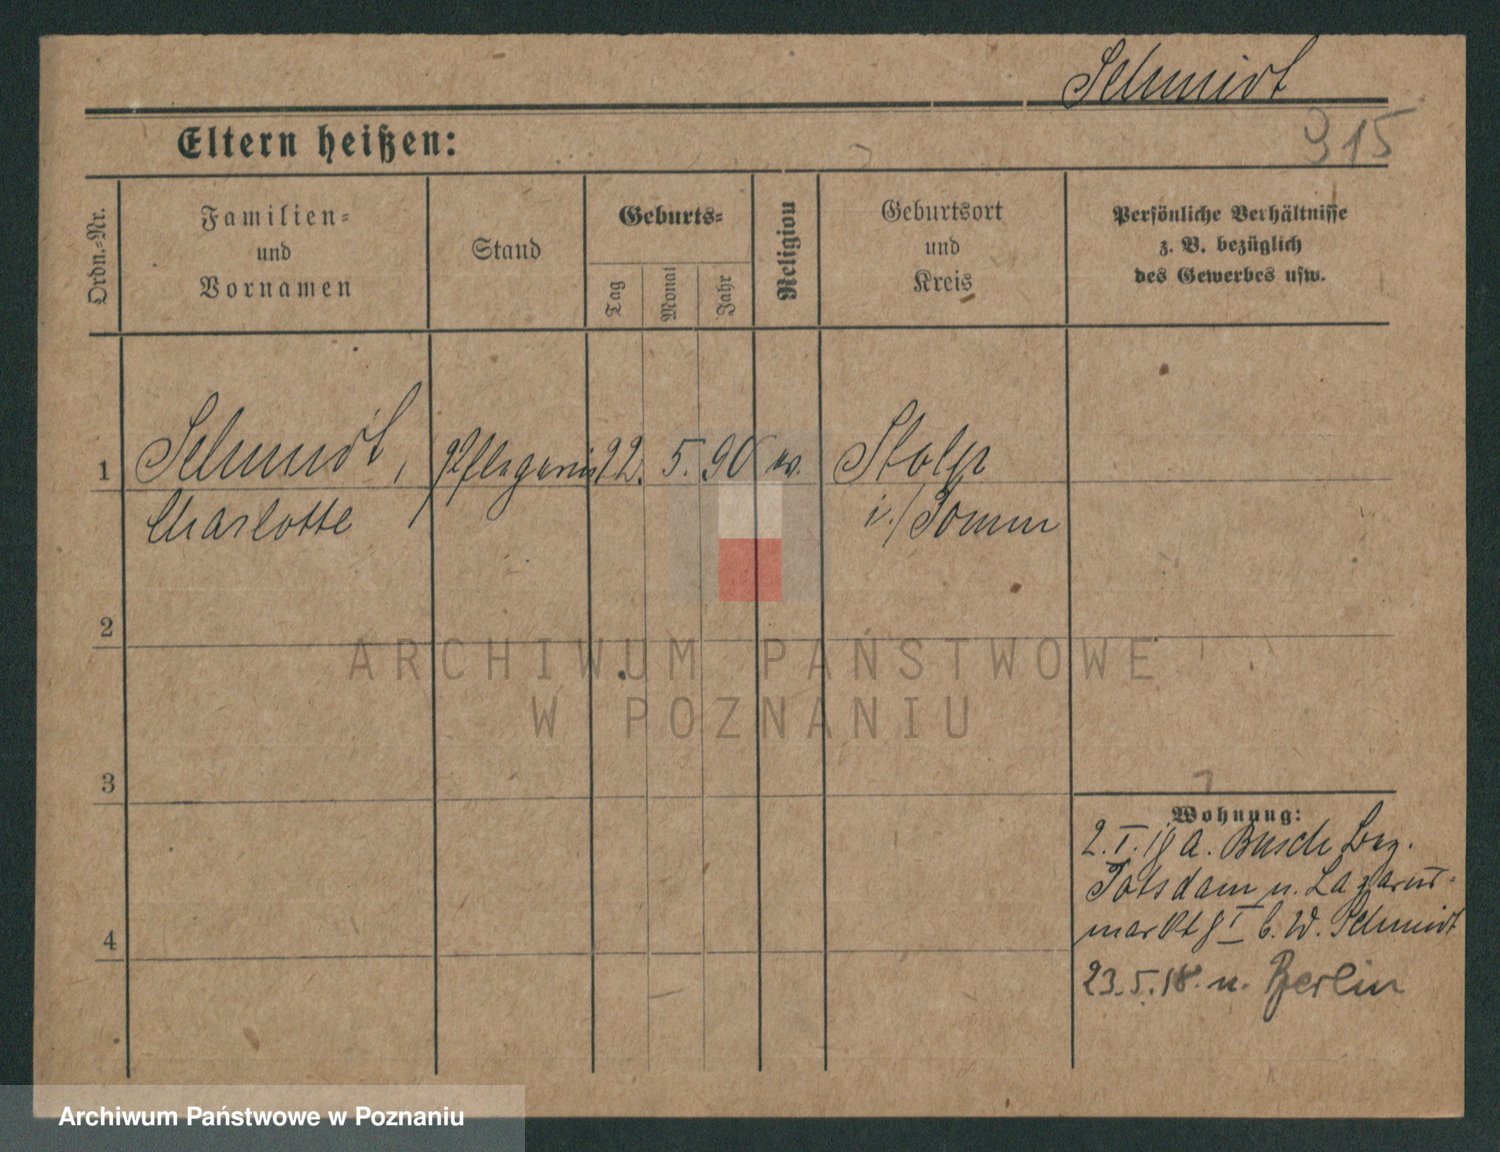 Schmidt
Eltern heißen:
915
Ordn.=Nr.
Familien=
und
Vornamen
Stand
Geburts=
Tag
Monat
Jahr
Religion
Geburtsort
und
Kreis
Persönliche Verhältnisse
z. B. bezüglich
des Gewerbes usw.
1
Schmidt, Pflegerin 22. 5. 90 ev. Stolp
Charlotte i./Pomm
2
ARCHIWUM PAŃSTWOWE
W POZNANIU
3
4
Wohnung:
2. I. 18 a. Busch Bez.
Potsdam n. Lazarus=
markt 8 I b. W. Schmidt
23. 5. 18. n. Berlin
Archiwum Państwowe w Poznaniu